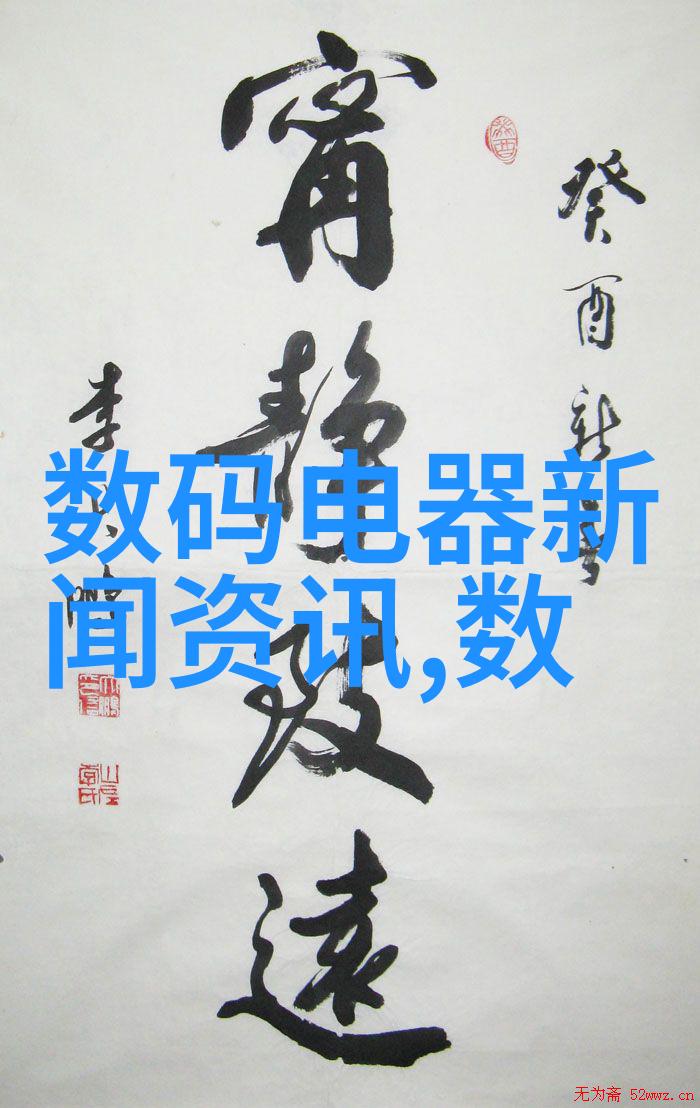 癸酉新春
寧靜致遠
李大鹏
数码电器新
闻资讯,数
无为斋 52wwz.cn